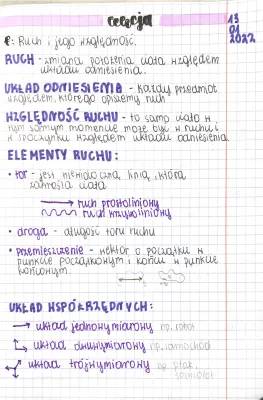 Lekcja
13
01
2022
T: Ruch i jego względność.
RUCH - zmiana położenia ciała względem
układu odniesienia.
UKŁAD ODNIESIENIA - każdy przedmiot
względem, którego opiszemy ruch
WZGLĘDNOŚĆ RUCHU - to samo ciało w
tym samym momencie może być w ruchu i
w spoczynku względem układu odniesienia
ELEMENTY RUCHU:
• tor - jest niewidoczna linia, którą
ciała
ruch prostoliniowy
ruch krzywoliniowy
• droga - długość toru ruchu
• przemieszczenie - wektor o początku w
punkcie początkowym i końcu w punkcie
końcowym.
UKŁAD WSPÓŁRZĘDNYCH:
układ jednowymiarowy np. robot
układ dwuwymiarowy np. samochód
układ trójwymiarowy np. ptak,
samolot